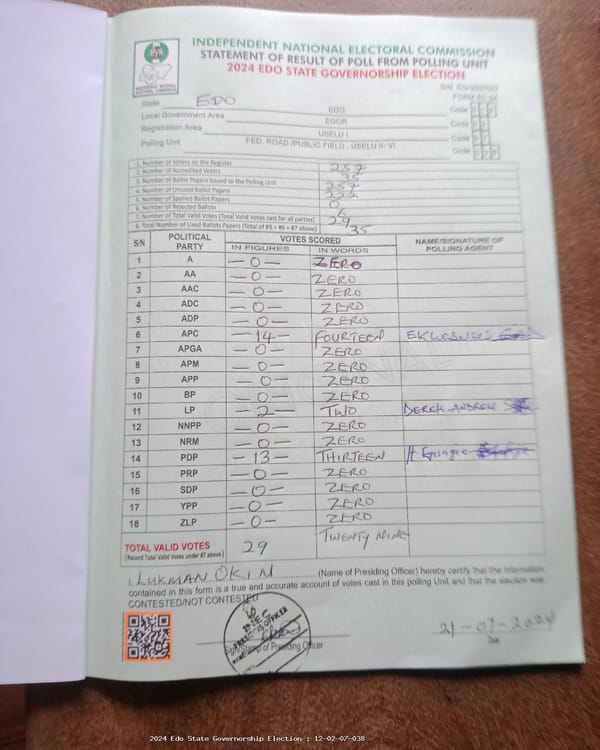 INDEPENDENT NATIONAL ELECTORAL COMMISSION
STATEMENT OF RESULT OF POLL FROM POLLING UNIT
2024 EDO STATE GOVERNORSHIP ELECTION
FORM EC 8A
State EDO Code
Local Government Area EDO Code
Registration Area EGOR Code
Polling Unit USELU I Code
FED. ROAD /PUBLIC FIELD , USELU II- VI
1. Number of Voters on the Register 257
2. Number of Accredited Voters 35
3. Number of Ballot Papers Issued to the Polling Unit 257
4. Number of Unused Ballot Papers 222
5. Number of Spoiled Ballot Papers 0
6. Number of Rejected Ballots 6
7. Number of Total Valid Votes (Total Valid Votes cast for all parties) 29
8. Total Number of Used Ballots Papers (Total of #5 + #6 + #7 above) 35
S/N POLITICAL PARTY VOTES SCORED NAME/SIGNATURE OF POLLING AGENT
IN FIGURES IN WORDS
1 A -0- ZERO
2 AA -0- ZERO
3 AAC -0- ZERO
4 ADC -0- ZERO
5 ADP -0- ZERO
6 APC -14- FOURTEEN
7 APGA -0- ZERO
8 APM -0- ZERO
9 APP -0- ZERO
10 BP -0- ZERO
11 LP -2- TWO DEREK ANDREW
12 NNPP -0- ZERO
13 NRM -0- ZERO
14 PDP -13- THIRTEEN
15 PRP -0- ZERO
16 SDP -0- ZERO
17 YPP -0- ZERO
18 ZLP -0- ZERO
TOTAL VALID VOTES 29 TWENTY NINE
(Record Total Valid Votes under #7 above)
I, LUKMAN OKIN (Name of Presiding Officer) hereby certify that the information
contained in this form is a true and accurate account of votes cast in this polling Unit and that the election was
CONTESTED/NOT CONTESTED
Sign/Stamp of Presiding Officer
21-09-2024
Date
2024 Edo State Governorship Election : 12-02-07-038